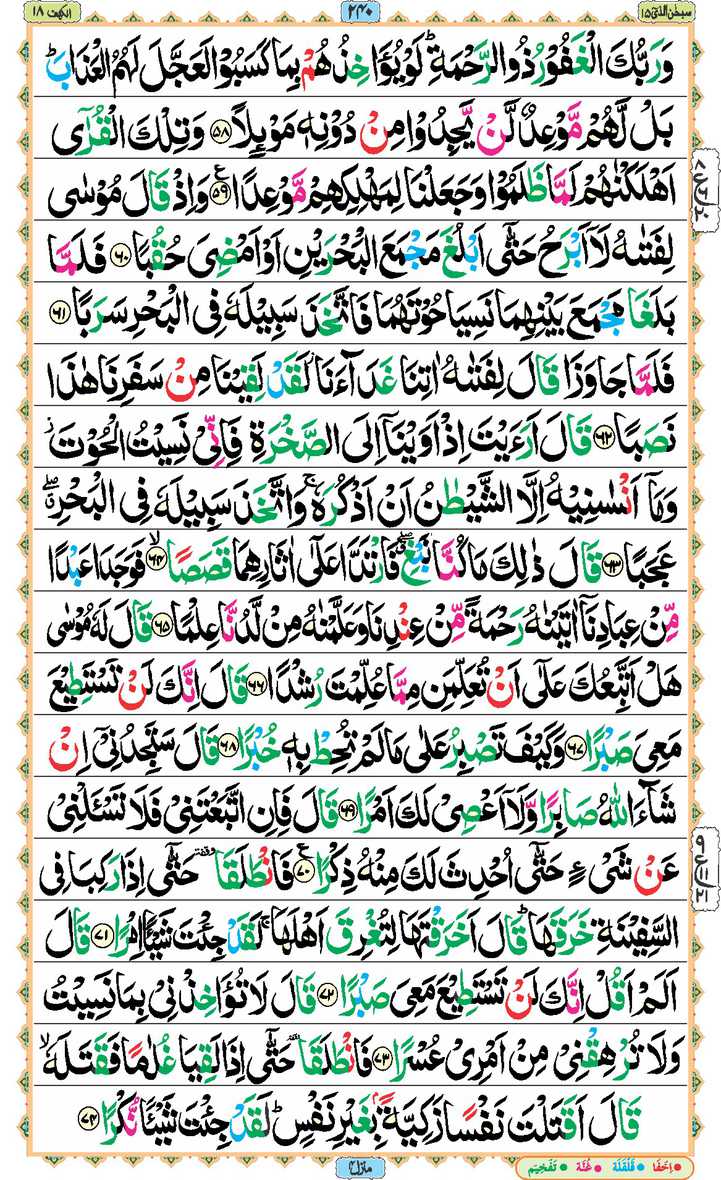 سبحٰن الذیٓ ۱۵
۲۴۰
الکہف ۱۸
وَرَبُّكَ الْغَفُوْرُ ذُو الرَّحْمَةِ ؕ لَوْ يُؤَاخِذُهُمْ بِمَا كَسَبُوْا لَعَجَّلَ لَهُمُ الْعَذَابَ ؕ
بَلْ لَّهُمْ مَّوْعِدٌ لَّنْ يَّجِدُوْا مِنْ دُوْنِهٖ مَوْىِٕلًا ۵۸ وَتِلْكَ الْقُرٰٓى
اَهْلَكْنٰهُمْ لَمَّا ظَلَمُوْا وَجَعَلْنَا لِمَهْلِكِهِمْ مَّوْعِدًا ۵۹ وَاِذْ قَالَ مُوْسٰى
لِفَتٰىهُ لَاۤ اَبْرَحُ حَتّٰۤى اَبْلُغَ مَجْمَعَ الْبَحْرَيْنِ اَوْ اَمْضِىَ حُقُبًا ۶۰ فَلَمَّا
بَلَغَا مَجْمَعَ بَيْنِهِمَا نَسِيَا حُوْتَهُمَا فَاتَّخَذَ سَبِيْلَهٗ فِى الْبَحْرِ سَرَبًا ۶۱
فَلَمَّا جَاوَزَا قَالَ لِفَتٰىهُ اٰتِنَا غَدَآءَنَا ؗ لَقَدْ لَقِيْنَا مِنْ سَفَرِنَا هٰذَا
نَصَبًا ۶۲ قَالَ اَرَءَيْتَ اِذْ اَوَيْنَاۤ اِلَى الصَّخْرَةِ فَاِنِّىْ نَسِيْتُ الْحُوْتَ ؗ
وَمَاۤ اَنْسٰنِيْهُ اِلَّا الشَّيْطٰنُ اَنْ اَذْكُرَهٗ ۚ وَاتَّخَذَ سَبِيْلَهٗ فِى الْبَحْرِ ۖۗ
عَجَبًا ۶۳ قَالَ ذٰلِكَ مَا كُنَّا نَبْغِ ۖۗ فَارْتَدَّا عَلٰٓى اٰثَارِهِمَا قَصَصًا ۙ ۶۴ فَوَجَدَا عَبْدًا
مِّنْ عِبَادِنَاۤ اٰتَيْنٰهُ رَحْمَةً مِّنْ عِنْدِنَا وَعَلَّمْنٰهُ مِنْ لَّدُنَّا عِلْمًا ۶۵ قَالَ لَهٗ مُوْسٰى
هَلْ اَتَّبِعُكَ عَلٰٓى اَنْ تُعَلِّمَنِ مِمَّا عُلِّمْتَ رُشْدًا ۶۶ قَالَ اِنَّكَ لَنْ تَسْتَطِيْعَ
مَعِىَ صَبْرًا ۶۷ وَكَيْفَ تَصْبِرُ عَلٰى مَا لَمْ تُحِطْ بِهٖ خُبْرًا ۶۸ قَالَ سَتَجِدُنِىْۤ اِنْ
شَآءَ اللّٰهُ صَابِرًا وَّلَاۤ اَعْصِىْ لَكَ اَمْرًا ۶۹ قَالَ فَاِنِ اتَّبَعْتَنِىْ فَلَا تَسْـَٔلْنِىْ
عَنْ شَىْءٍ حَتّٰۤى اُحْدِثَ لَكَ مِنْهُ ذِكْرًا ۷۰ فَانْطَلَقَا وقفة حَتّٰۤى اِذَا رَكِبَا فِى
السَّفِيْنَةِ خَرَقَهَا ؕ قَالَ اَخَرَقْتَهَا لِتُغْرِقَ اَهْلَهَا ۚ لَقَدْ جِئْتَ شَيْـًٔا اِمْرًا ۷۱ قَالَ
اَلَمْ اَقُلْ اِنَّكَ لَنْ تَسْتَطِيْعَ مَعِىَ صَبْرًا ۷۲ قَالَ لَا تُؤَاخِذْنِىْ بِمَا نَسِيْتُ
وَلَا تُرْهِقْنِىْ مِنْ اَمْرِىْ عُسْرًا ۷۳ فَانْطَلَقَا وقفة حَتّٰۤى اِذَا لَقِيَا غُلٰمًا فَقَتَلَهٗ ۙ
قَالَ اَقَتَلْتَ نَفْسًا زَكِيَّةًۢ بِغَيْرِ نَفْسٍ ؕ لَقَدْ جِئْتَ شَيْـًٔا نُّكْرًا ۷۴
منزل۴
اِخفَا قَلْقَلَہ غُنَّہ تَفْخِيْم